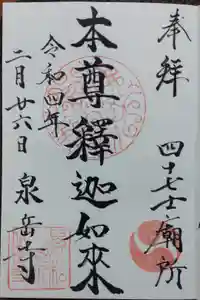 奉拜
四十七士廟所
本尊釋迦如來
令和四年
二月廿六日
泉岳寺